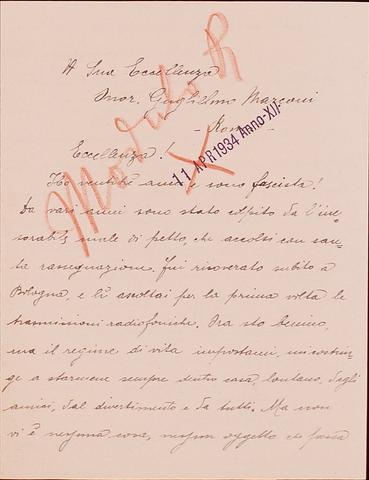 A Sua Eccellenza
Mar. Guglielmo Marconi
- Roma -
Modulo R
11 APR 1934 Anno XII
Eccellenza!
Ho ventitré anni e sono fascista!
Da vari anni sono stato colpito da l'ine-
sorabile male di petto, che accolsi con san-
ta rassegnazione. Fui ricoverato subito a
Bologna, e lì ascoltai per la prima volta le
trasmissioni radiofoniche. Ora sto benino,
ma il regime di vita impostami, mi costrin-
ge a starmene sempre dentro casa, lontano, dagli
amici, dal divertimento e da tutti. Ma non
vi è nessuna cosa, nessun oggetto che possa